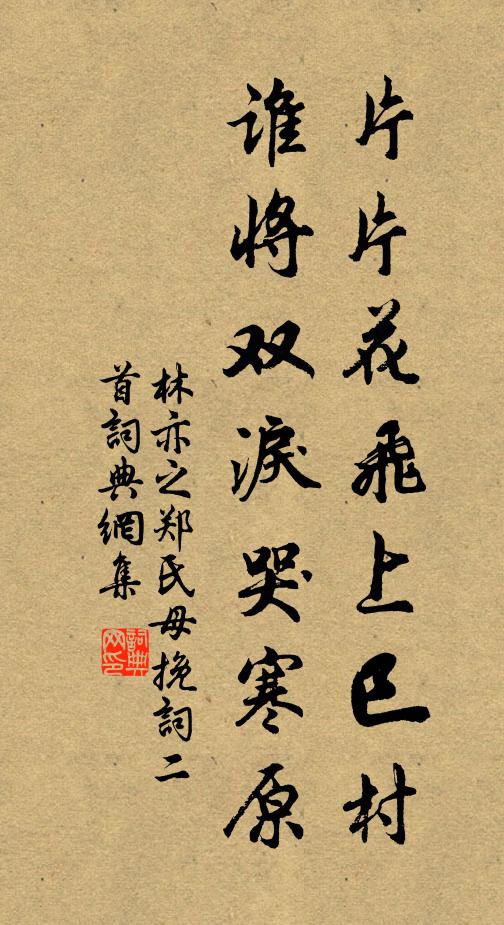 片片花飛上巳村
谁将双淚哭寒原
林亦之郑氏母挽詞二
首詞典網集
詞典
网印